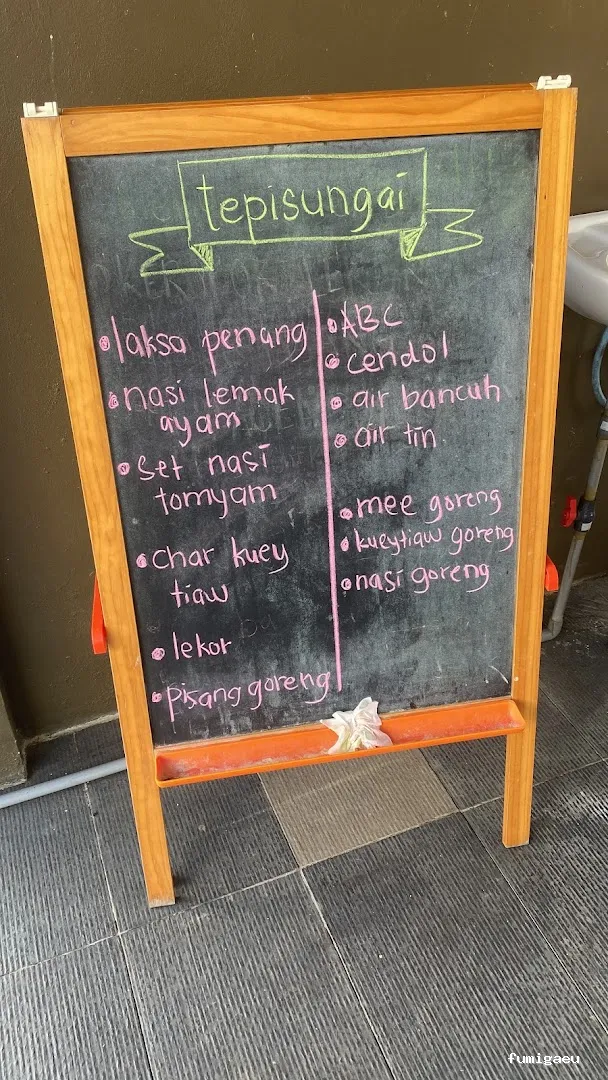 tepisungai
laksa penang
nasi lemak
ayam
set nasi
tomyam
char kuey
tiaw
lekor
pisang goreng
ABC
cendol
air bancuh
air tin
mee goreng
kueytiaw goreng
nasi goreng
fumigaeu